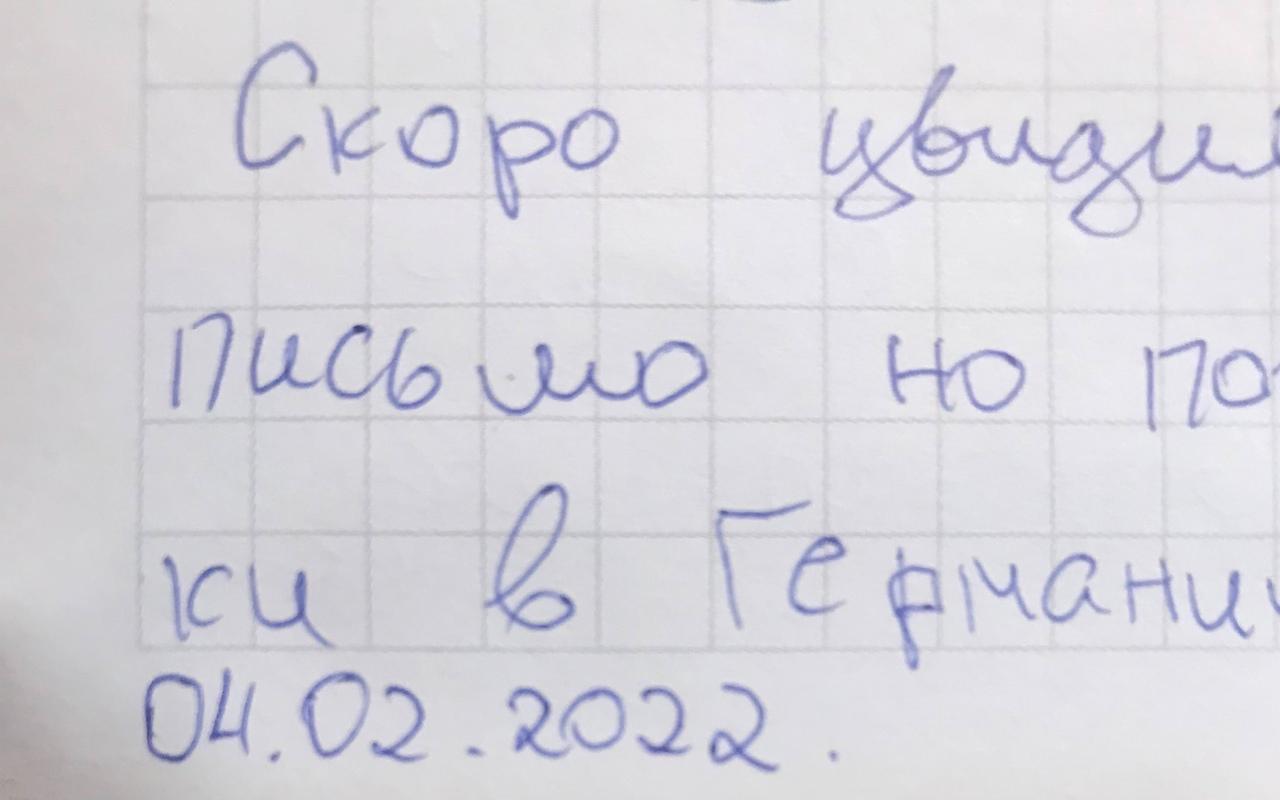 Скоро увиди
письмо но по
ки в Германи
04.02.2022.